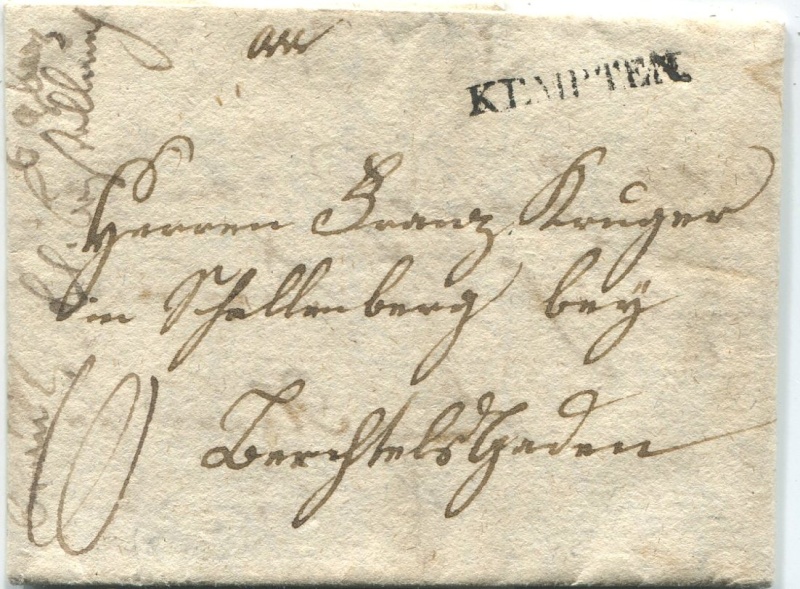 KEMPTEN.
An
Herren Franz Kruger
in Schellenberg bey
Berchtelsgaden